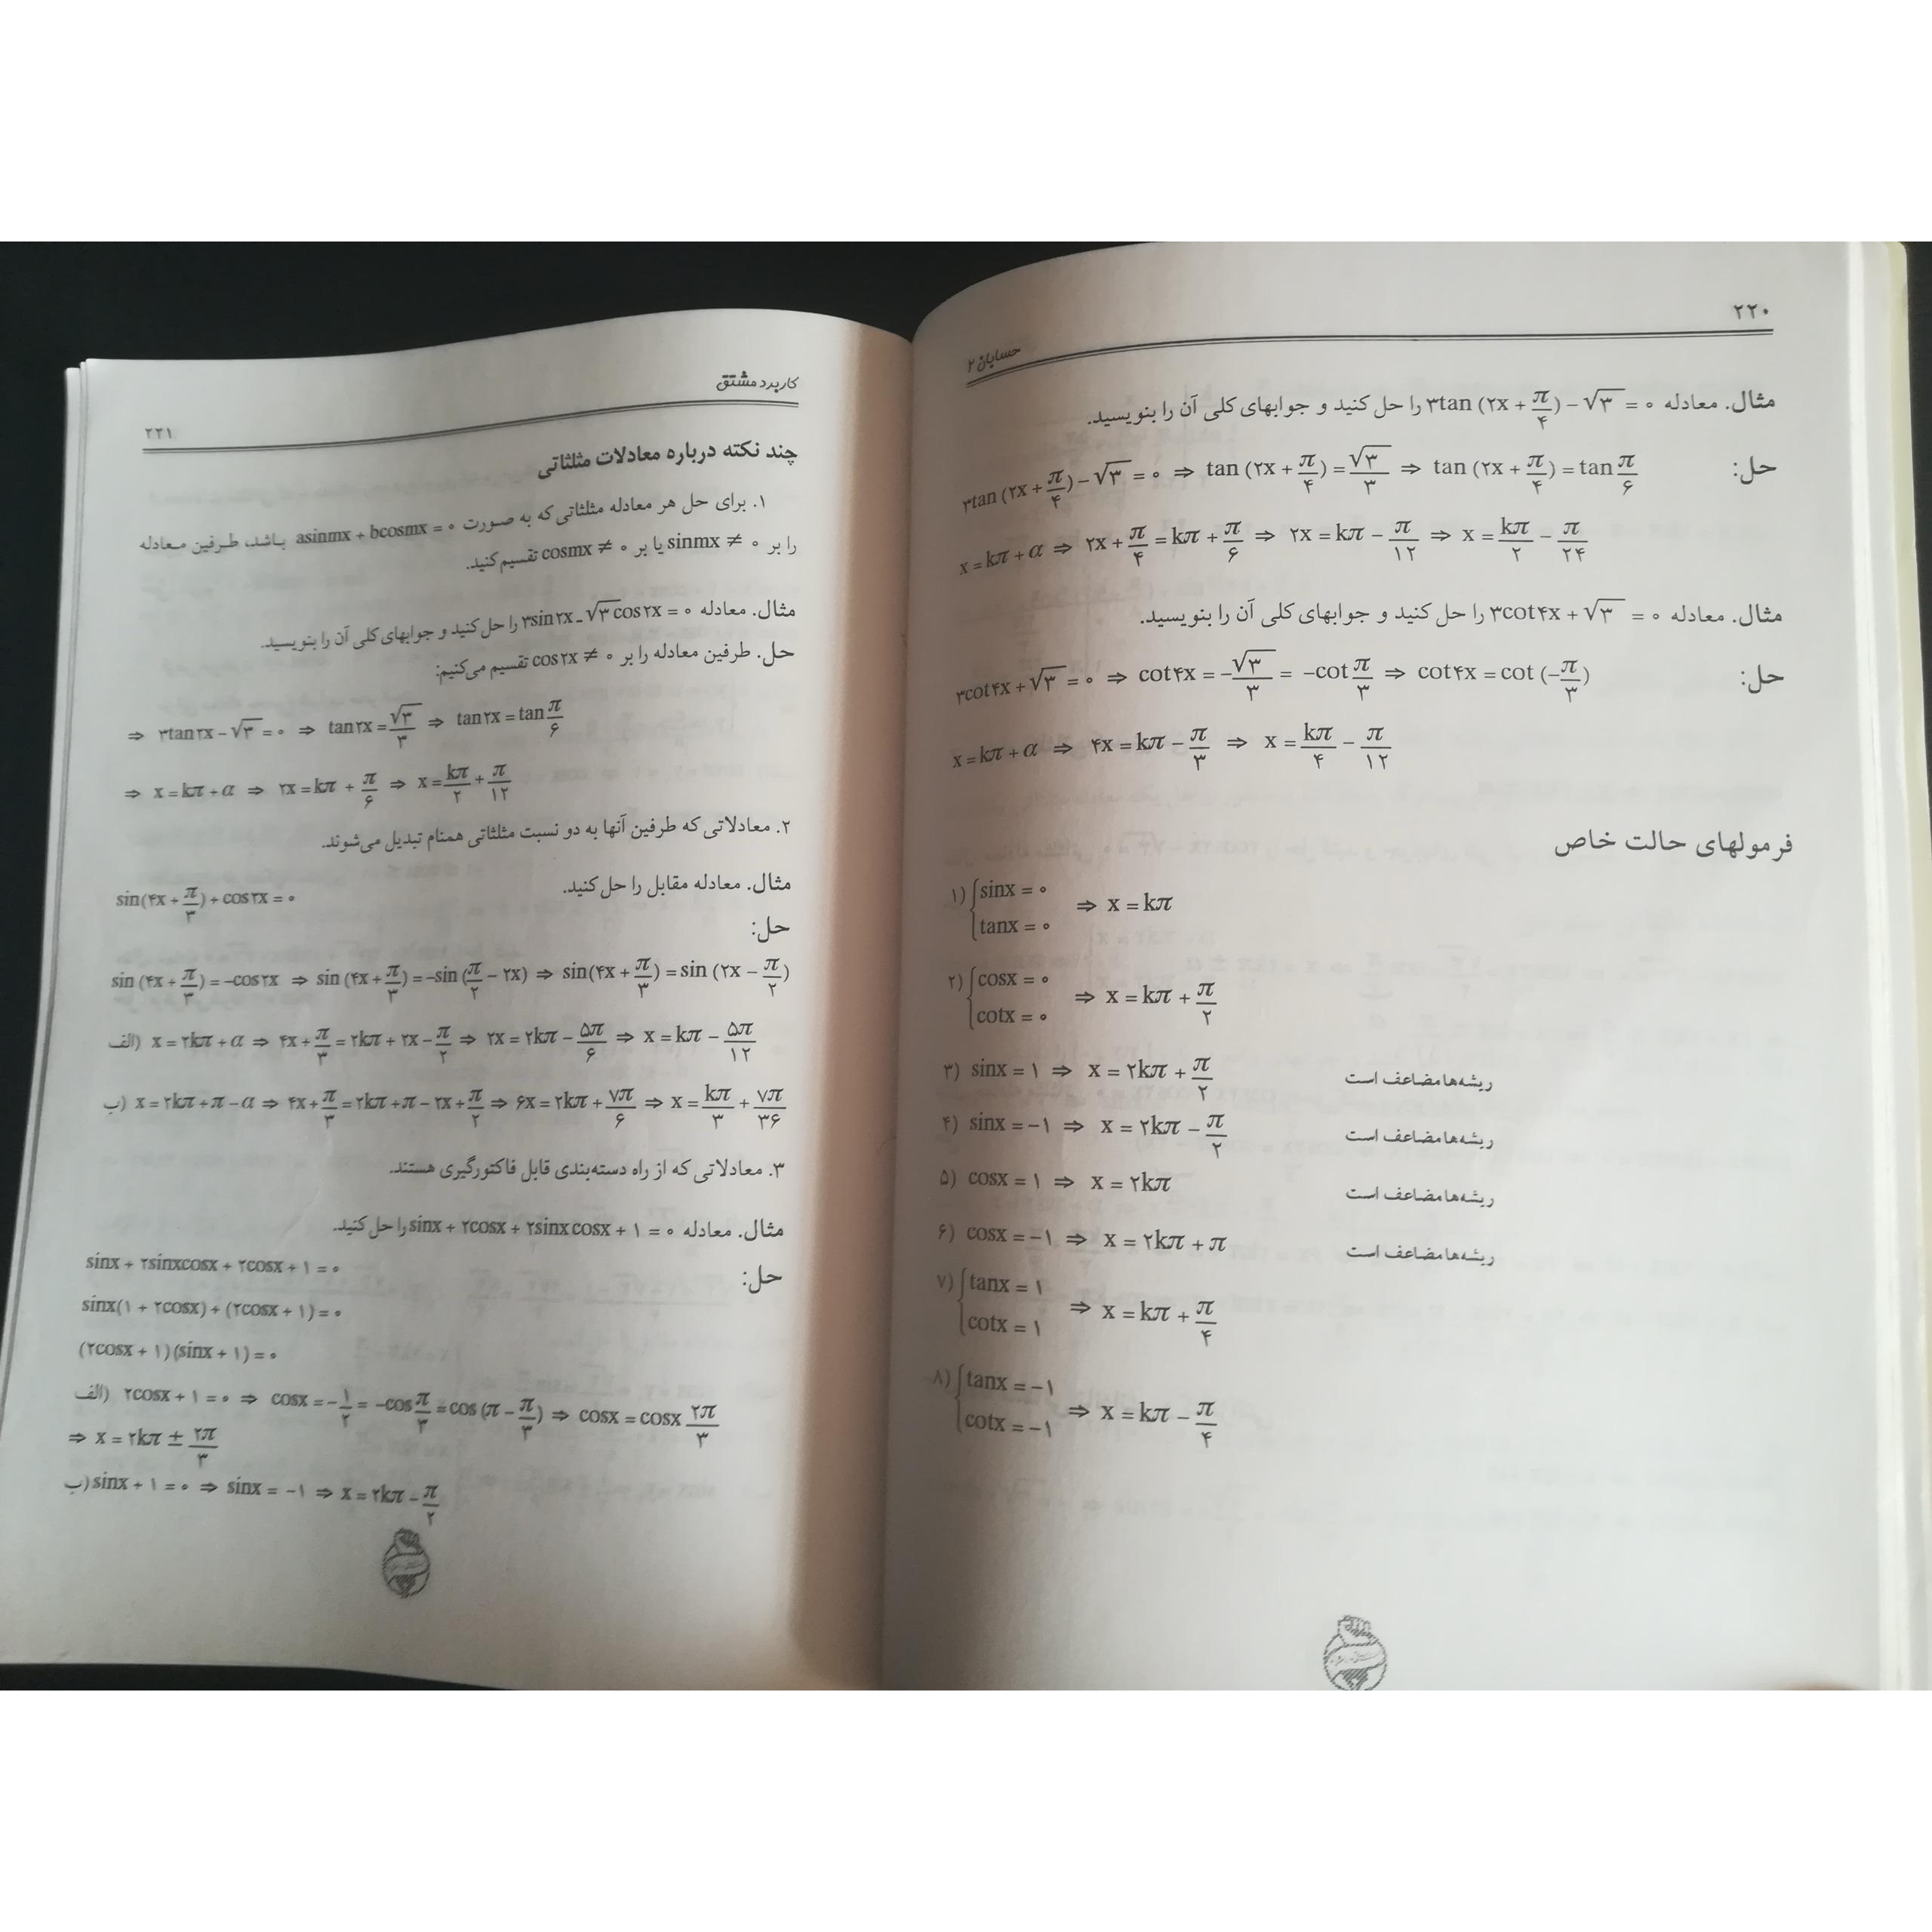 ۲۲۰
حسابان ۲
مثال. معادله ۳tan (۲x + π/۴) − √۳ = ۰ را حل کنید و جوابهای کلی آن را بنویسید.
حل: ۳tan (۲x + π/۴) − √۳ = ۰ ⇒ tan (۲x + π/۴) = √۳/۳ ⇒ tan (۲x + π/۴) = tan π/۶
x = kπ + α ⇒ ۲x + π/۴ = kπ + π/۶ ⇒ ۲x = kπ − π/۱۲ ⇒ x = kπ/۲ − π/۲۴
مثال. معادله ۳cot۴x + √۳ = ۰ را حل کنید و جوابهای کلی آن را بنویسید.
حل: ۳cot۴x + √۳ = ۰ ⇒ cot۴x = −√۳/۳ = −cot π/۳ ⇒ cot۴x = cot (−π/۳)
x = kπ + α ⇒ ۴x = kπ − π/۳ ⇒ x = kπ/۴ − π/۱۲
فرمولهای حالت خاص
۱) {sinx = ۰
tanx = ۰ ⇒ x = kπ
۲) {cosx = ۰
cotx = ۰ ⇒ x = kπ + π/۲
۳) sinx = ۱ ⇒ x = ۲kπ + π/۲ ریشه‌ها مضاعف است
۴) sinx = −۱ ⇒ x = ۲kπ − π/۲ ریشه‌ها مضاعف است
۵) cosx = ۱ ⇒ x = ۲kπ ریشه‌ها مضاعف است
۶) cosx = −۱ ⇒ x = ۲kπ + π ریشه‌ها مضاعف است
۷) {tanx = ۱
cotx = ۱ ⇒ x = kπ + π/۴
۸) {tanx = −۱
cotx = −۱ ⇒ x = kπ − π/۴
کاربرد مشتق
۲۲۱
چند نکته درباره معادلات مثلثاتی
۱. برای حل هر معادله مثلثاتی که به صورت asinmx + bcosmx = ۰ باشد، طرفین معادله
را بر sinmx ≠ ۰ یا بر cosmx ≠ ۰ تقسیم کنید.
مثال. معادله ۳sin۲x − √۳cos۲x = ۰ را حل کنید و جوابهای کلی آن را بنویسید.
حل. طرفین معادله را بر cos۲x ≠ ۰ تقسیم می‌کنیم:
⇒ ۳tan۲x − √۳ = ۰ ⇒ tan۲x = √۳/۳ ⇒ tan۲x = tan π/۶
⇒ x = kπ + α ⇒ ۲x = kπ + π/۶ ⇒ x = kπ/۲ + π/۱۲
۲. معادلاتی که طرفین آنها به دو نسبت مثلثاتی همنام تبدیل می‌شوند.
مثال. معادله مقابل را حل کنید. sin(۴x + π/۳) + cos۲x = ۰
حل:
sin (۴x + π/۳) = −cos۲x ⇒ sin (۴x + π/۳) = −sin (π/۲ − ۲x) ⇒ sin(۴x + π/۳) = sin (۲x − π/۲)
الف) x = ۲kπ + α ⇒ ۴x + π/۳ = ۲kπ + ۲x − π/۲ ⇒ ۲x = ۲kπ − ۵π/۶ ⇒ x = kπ − ۵π/۱۲
ب) x = ۲kπ + π − α ⇒ ۴x + π/۳ = ۲kπ + π − ۲x + π/۲ ⇒ ۶x = ۲kπ + ۷π/۶ ⇒ x = kπ/۳ + ۷π/۳۶
۳. معادلاتی که از راه دسته‌بندی قابل فاکتورگیری هستند.
مثال. معادله sinx + ۲cosx + ۲sinxcosx + ۱ = ۰ را حل کنید.
حل:
sinx + ۲sinxcosx + ۲cosx + ۱ = ۰
sinx(۱ + ۲cosx) + (۲cosx + ۱) = ۰
(۲cosx + ۱)(sinx + ۱) = ۰
الف) ۲cosx + ۱ = ۰ ⇒ cosx = −۱/۲ = −cos π/۳ = cos (π − π/۳) ⇒ cosx = cosx ۲π/۳
⇒ x = ۲kπ ± ۲π/۳
ب) sinx + ۱ = ۰ ⇒ sinx = −۱ ⇒ x = ۲kπ − π/۲